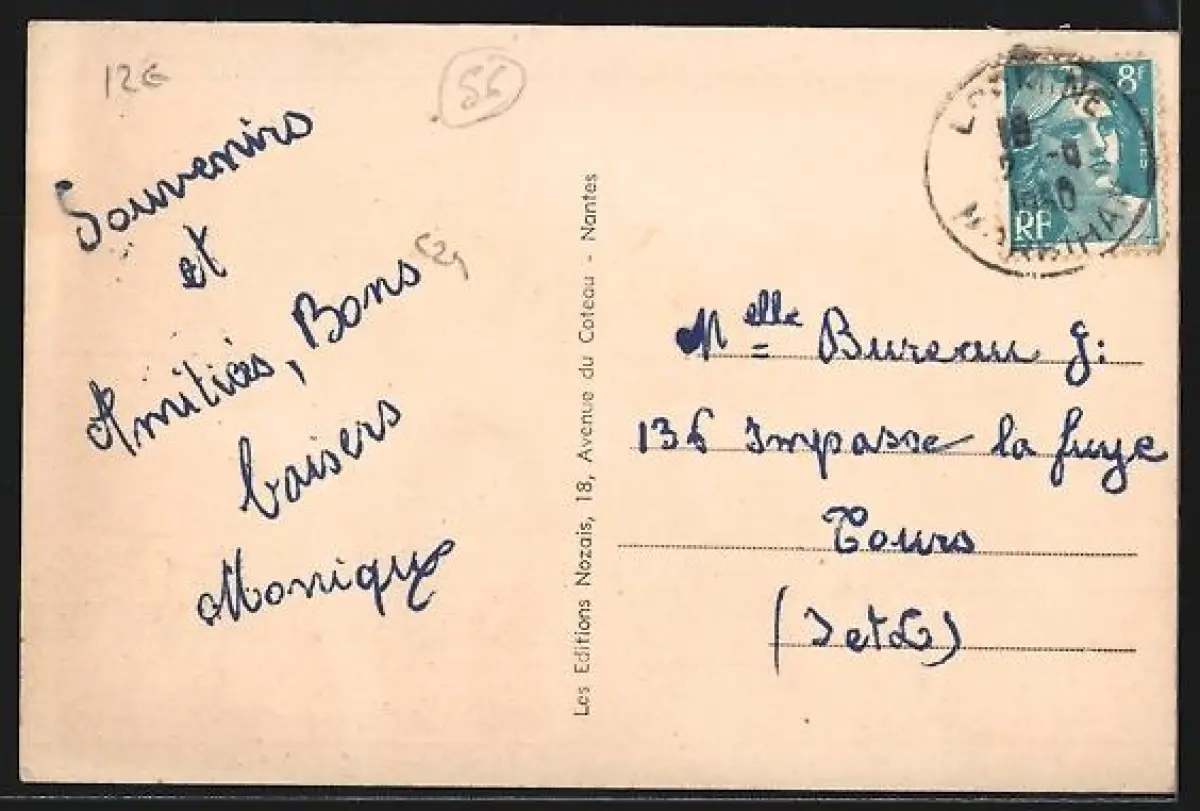 12€
56
Souvenirs
et
Amitiés, Bons
baisers
Monique
Les Editions Nozais, 18, Avenue du Coteau - Nantes
8f
POSTES
RF
MORBIHAN
Melle Bureau J:
136 Impasse la fuye
Tours
(I et L)